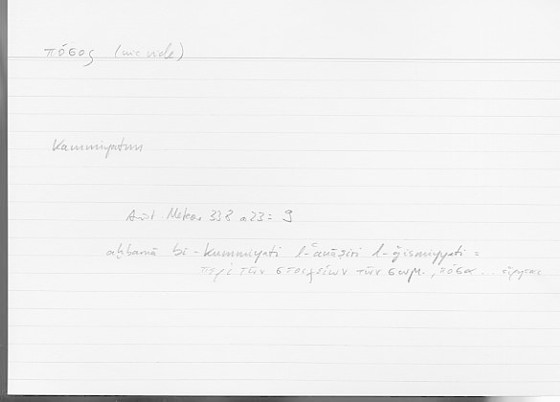 πόσος (sic vide)
Kammiyatun
Arist. Meteor 338 a 23 = 9
aḫbarnā bi-kammiyati l-ʿanāṣiri l-ǧismiyyati =
περὶ τῶν στοιχείων τῶν σωμ., πόσα ... εἴρηται